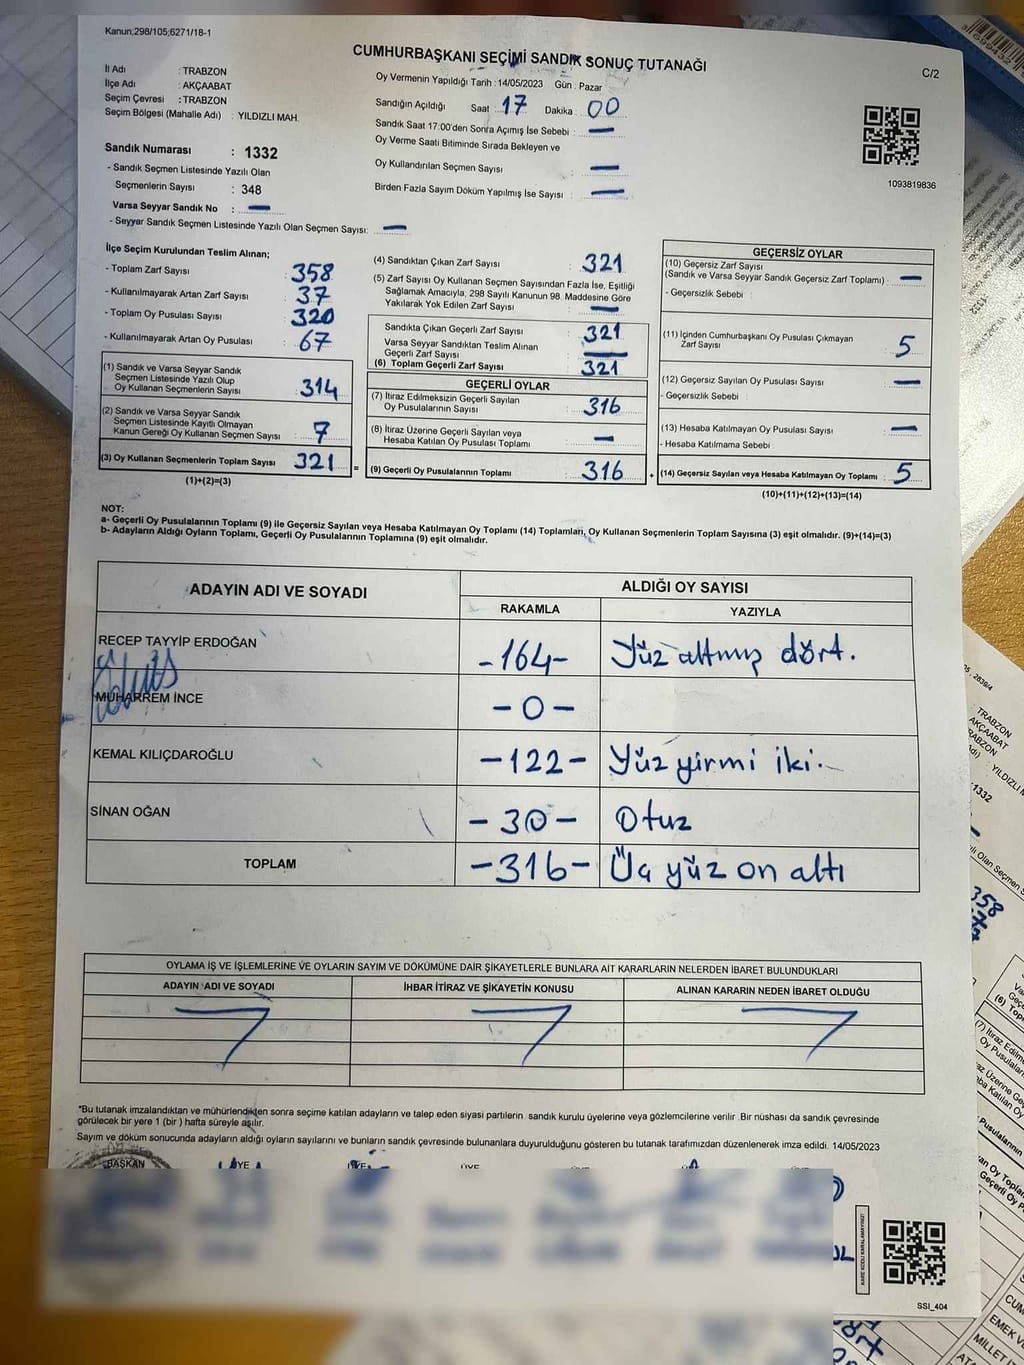 Kanun;298/105;6271/18-1
CUMHURBAŞKANI SEÇİMİ SANDIK SONUÇ TUTANAĞI
C/2
İl Adı : TRABZON
İlçe Adı : AKÇAABAT
Seçim Çevresi : TRABZON
Seçim Bölgesi (Mahalle Adı) : YILDIZLI MAH.
Sandık Numarası : 1332
- Sandık Seçmen Listesinde Yazılı Olan
Seçmenlerin Sayısı : 348
Varsa Seyyar Sandık No : —
- Seyyar Sandık Seçmen Listesinde Yazılı Olan Seçmen Sayısı: —
Oy Vermenin Yapıldığı Tarih : 14/05/2023 Gün : Pazar
Sandığın Açıldığı Saat : 17 Dakika : 00
Sandık Saat 17:00'den Sonra Açımış İse Sebebi : —
Oy Verme Saati Bitiminde Sırada Bekleyen ve
Oy Kullandırılan Seçmen Sayısı : —
Birden Fazla Sayım Döküm Yapılmış İse Sayısı : —
1093819836
İlçe Seçim Kurulundan Teslim Alınan;
- Toplam Zarf Sayısı : 358
- Kullanılmayarak Artan Zarf Sayısı : 37
- Toplam Oy Pusulası Sayısı : 320
- Kullanılmayarak Artan Oy Pusulası : 67
(1) Sandık ve Varsa Seyyar Sandık
Seçmen Listesinde Yazılı Olup
Oy Kullanan Seçmenlerin Sayısı : 314
(2) Sandık ve Varsa Seyyar Sandık
Seçmen Listesinde Kayıtlı Olmayan
Kanun Gereği Oy Kullanan Seçmen Sayısı : 7
(3) Oy Kullanan Seçmenlerin Toplam Sayısı : 321
(1)+(2)=(3)
(4) Sandıktan Çıkan Zarf Sayısı : 321
(5) Zarf Sayısı Oy Kullanan Seçmen Sayısından Fazla İse, Eşitliği
Sağlamak Amacıyla, 298 Sayılı Kanunun 98. Maddesine Göre
Yakılarak Yok Edilen Zarf Sayısı : —
Sandıkta Çıkan Geçerli Zarf Sayısı : 321
Varsa Seyyar Sandıktan Teslim Alınan
Geçerli Zarf Sayısı : —
(6) Toplam Geçerli Zarf Sayısı : 321
GEÇERLİ OYLAR
(7) İtiraz Edilmeksizin Geçerli Sayılan
Oy Pusulalarının Sayısı : 316
(8) İtiraz Üzerine Geçerli Sayılan veya
Hesaba Katılan Oy Pusulası Toplamı : —
(9) Geçerli Oy Pusulalarının Toplamı : 316
GEÇERSİZ OYLAR
(10) Geçersiz Zarf Sayısı
(Sandık ve Varsa Seyyar Sandık Geçersiz Zarf Toplamı) : —
- Geçersizlik Sebebi :
(11) İçinden Cumhurbaşkanı Oy Pusulası Çıkmayan
Zarf Sayısı : 5
(12) Geçersiz Sayılan Oy Pusulası Sayısı : —
- Geçersizlik Sebebi :
(13) Hesaba Katılmayan Oy Pusulası Sayısı : —
- Hesaba Katılmama Sebebi :
(14) Geçersiz Sayılan veya Hesaba Katılmayan Oy Toplamı : 5
(10)+(11)+(12)+(13)=(14)
NOT:
a- Geçerli Oy Pusulalarının Toplamı (9) ile Geçersiz Sayılan veya Hesaba Katılmayan Oy Toplamı (14) Toplamları, Oy Kullanan Seçmenlerin Toplam Sayısına (3) eşit olmalıdır. (9)+(14)=(3)
b- Adayların Aldığı Oyların Toplamı, Geçerli Oy Pusulalarının Toplamına (9) eşit olmalıdır.
ADAYIN ADI VE SOYADI ALDIĞI OY SAYISI
RAKAMLA YAZIYLA
RECEP TAYYİP ERDOĞAN -164- Yüz altmış dört.
MUHARREM İNCE -0-
KEMAL KILIÇDAROĞLU -122- Yüz yirmi iki.
SİNAN OĞAN -30- Otuz
TOPLAM -316- Üç yüz on altı
OYLAMA İŞ VE İŞLEMLERİNE VE OYLARIN SAYIM VE DÖKÜMÜNE DAİR ŞİKAYETLERLE BUNLARA AİT KARARLARIN NELERDEN İBARET BULUNDUKLARI
ADAYIN ADI VE SOYADI İHBAR İTİRAZ VE ŞİKAYETİN KONUSU ALINAN KARARIN NEDEN İBARET OLDUĞU
*Bu tutanak imzalandıktan ve mühürlendikten sonra seçime katılan adayların ve talep eden siyasi partilerin sandık kurulu üyelerine veya gözlemcilerine verilir .Bir nüshası da sandık çevresinde
görülecek bir yere 1 (bir ) hafta süreyle asılır.
Sayım ve döküm sonucunda adayların aldığı oyların sayılarını ve bunların sandık çevresinde bulunanlara duyurulduğunu gösteren bu tutanak tarafımızdan düzenlenerek imza edildi. 14/05/2023
BAŞKAN ÜYE ÜYE ÜYE
KARE KODU KARALAMAYINIZ!
SSI_404
TRABZON
AKÇAABAT
YILDIZLI
1332
358